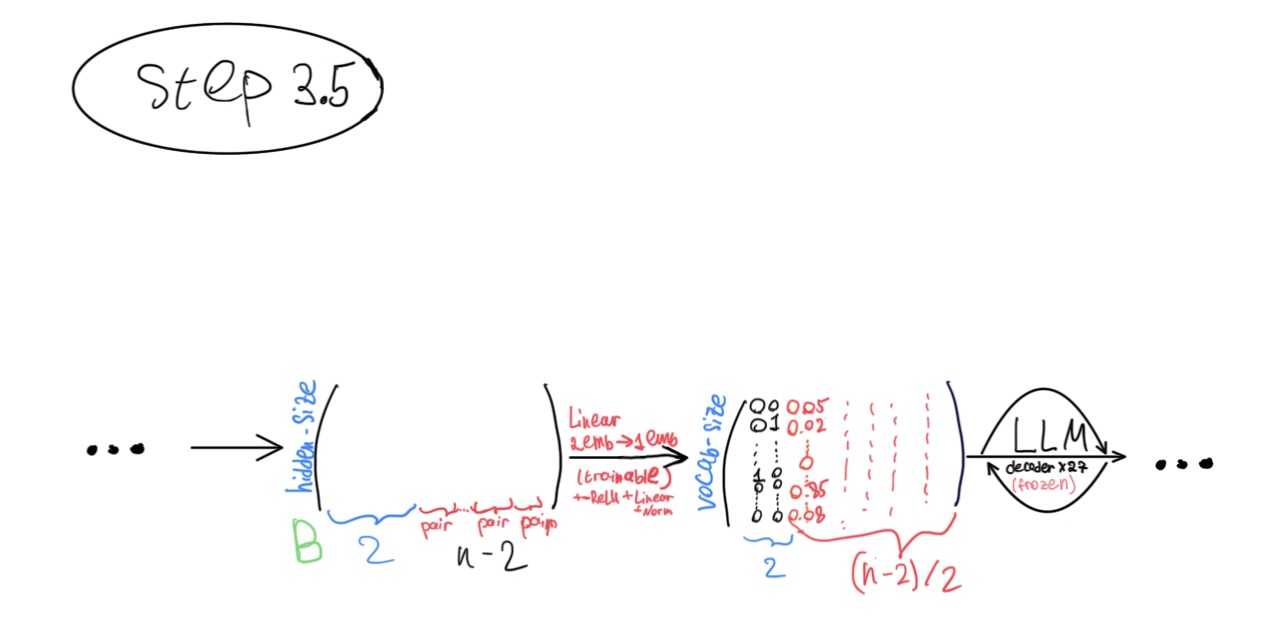 Step 3.5
...
hidden-size
B
2
pair
...
pair
pair
n-2
Linear
2emb→1emb
(trainable)
+ReLU+Linear
+Norm
vocab-size
0 0 0.05
0 1 0.02
0
1 0
0 0 0.85
0 0 0.08
2
(n-2)/2
LLM
decoder x27
(frozen)
...